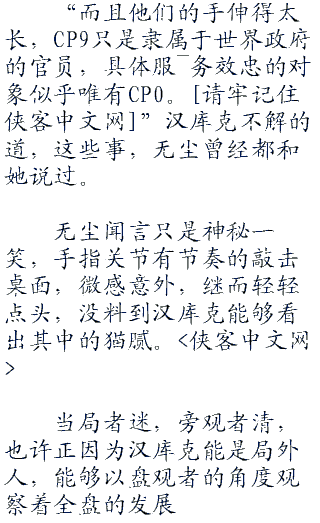 “而且他们的手伸得太
长，CP9只是隶属于世界政府
的官员，具体服¯务效忠的对
象似乎唯有CP0。[请牢记住
侠客中文网]”汉库克不解的
道，这些事，无尘曾经都和
她说过。
无尘闻言只是神秘一
笑，手指关节有节奏的敲击
桌面，微感意外，继而轻轻
点头，没料到汉库克能够看
出其中的猫腻。<侠客中文网
>
当局者迷，旁观者清，
也许正因为汉库克能是局外
人，能够以盘观者的角度观
察着全盘的发展